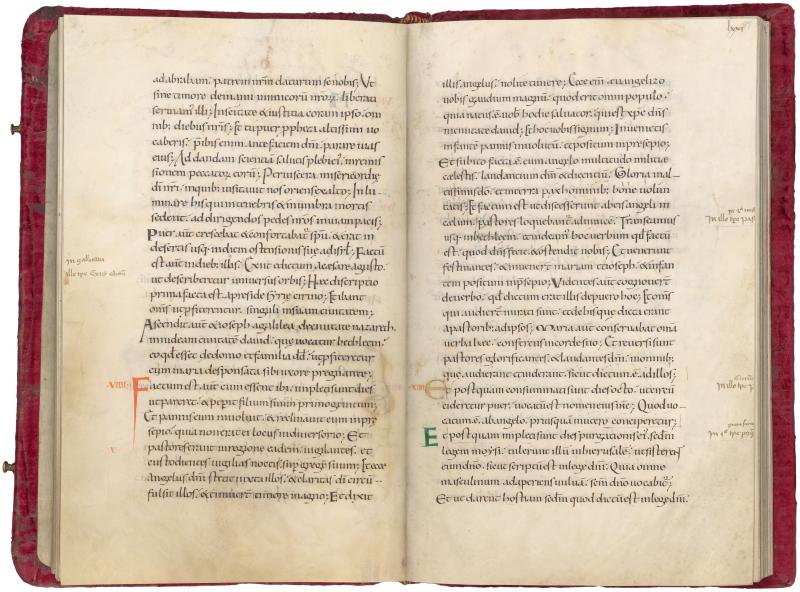 ad abraham. patrem nrm daturum se nobis; Ut
sine timore de manu inimicoru nror. liberati
seruiam illi; In scitate & iustitia coram ipso. om
nib: diebus nris; Et tu puer ppheta altissimi uo
caberis. pibis enim ante faciem dni. parare uias
eius; Ad dandam scientia salutis plebi ei. in remis
sionem peccator eoru; Per uiscera misericordie
di nri. in quib: uisitauit nos oriens ex alto; In lu
minare his qui in tenebris & in umbra mortis
sedent. ad dirigendos pedes nros in uiam pacis;
Puer aut crescebat & confortabat spu. & erat in
desertis usq; in diem ostensionis sue ad isrl; Factu
est aut in dieb: illis. Exiit edictum a cesare agusto.
ut describeretur uniuersus orbis; Haec discriptio
prima facta est. a preside syrie cirino; Et ibant
oms ut pfiterentur. singuli in suam ciuitatem;
Ascendit aut & ioseph a galilea. de ciuitate nazareth.
in iudeam ciuitate dauid. que uocatur bethleem.
eo qd esset de domo et familia dd. ut pfiteretur
cum maria desponsata sibi uxore pregnante;
Factum est aut cum essent ibi. impleti sunt dies
ut pareret. & peperit filium suum primogenitum;
Et pannis eum inuoluit. & reclinauit eum in pre
sepio. quia non erat ei locus in diuersorio; Et
pastores erant in regione eadem. uigilantes. et
custodientes uigilias noctis. sup gregem suum; Et ecce
angelus dni stetit iuxta illos. & claritas di circu
fulsit illos. & timuert timore magno; Et dixit
illis angelus. nolite timere; Ecce eni euangelizo
uobis gaudium magnu. quod erit omni populo.
quia natus e uob hodie saluator. qui est xpc dns
in ciuitate dauid; Et hoc uobis signum; Inuenietis
infante pannis inuolutu. et positum in presepio;
Et subito facta e. cum angelo multitudo militie
celestis. laudantium dm & dicentiu. Gloria in al-
tissimis do. et in terra pax hominib; bone uolun
tatis; Et factum est ut discesserunt ab eis angeli in
caelum. pastores loquebant ad inuice. Transeamus
usq; in bethleem. et uideam hoc uerbum qd factu
est. quod dns fecit & ostendit nobis; Et uenerunt
festinantes. & inuenert mariam et ioseph. & infan
tem positum in psepio; Videntes aut cognouert
de uerbo. qd dictum erat illis de puero hoc; Et oms
qui audiert mirati sunt. et de his que dicta erant
a pastorib: ad ipsos; Maria aut conseruabat oma
uerba hec. conferens in corde suo; Et reuersi sunt
pastores glorificantes. & laudantes dm. in omnib;
que audierant & uiderant. sicut dictum e ad illos;
Et postquam consummati sunt dies octo. ut circu
cideretur puer. uocatu est nomen eius ihc; Quod uo-
catum e. ab angelo. priusqua in utero conciperetur;
Et postquam impleti sunt dies purgationis ei. sedm
legem moysi. tulerunt illu in hierusale. ut sisterent
eum dno. sicut scriptu est in lege dni; Quia omne
masculinum adaperiens uuluam. scm dno uocabit;
Et ut darent hostiam sedm quod dictu est in lege dni.